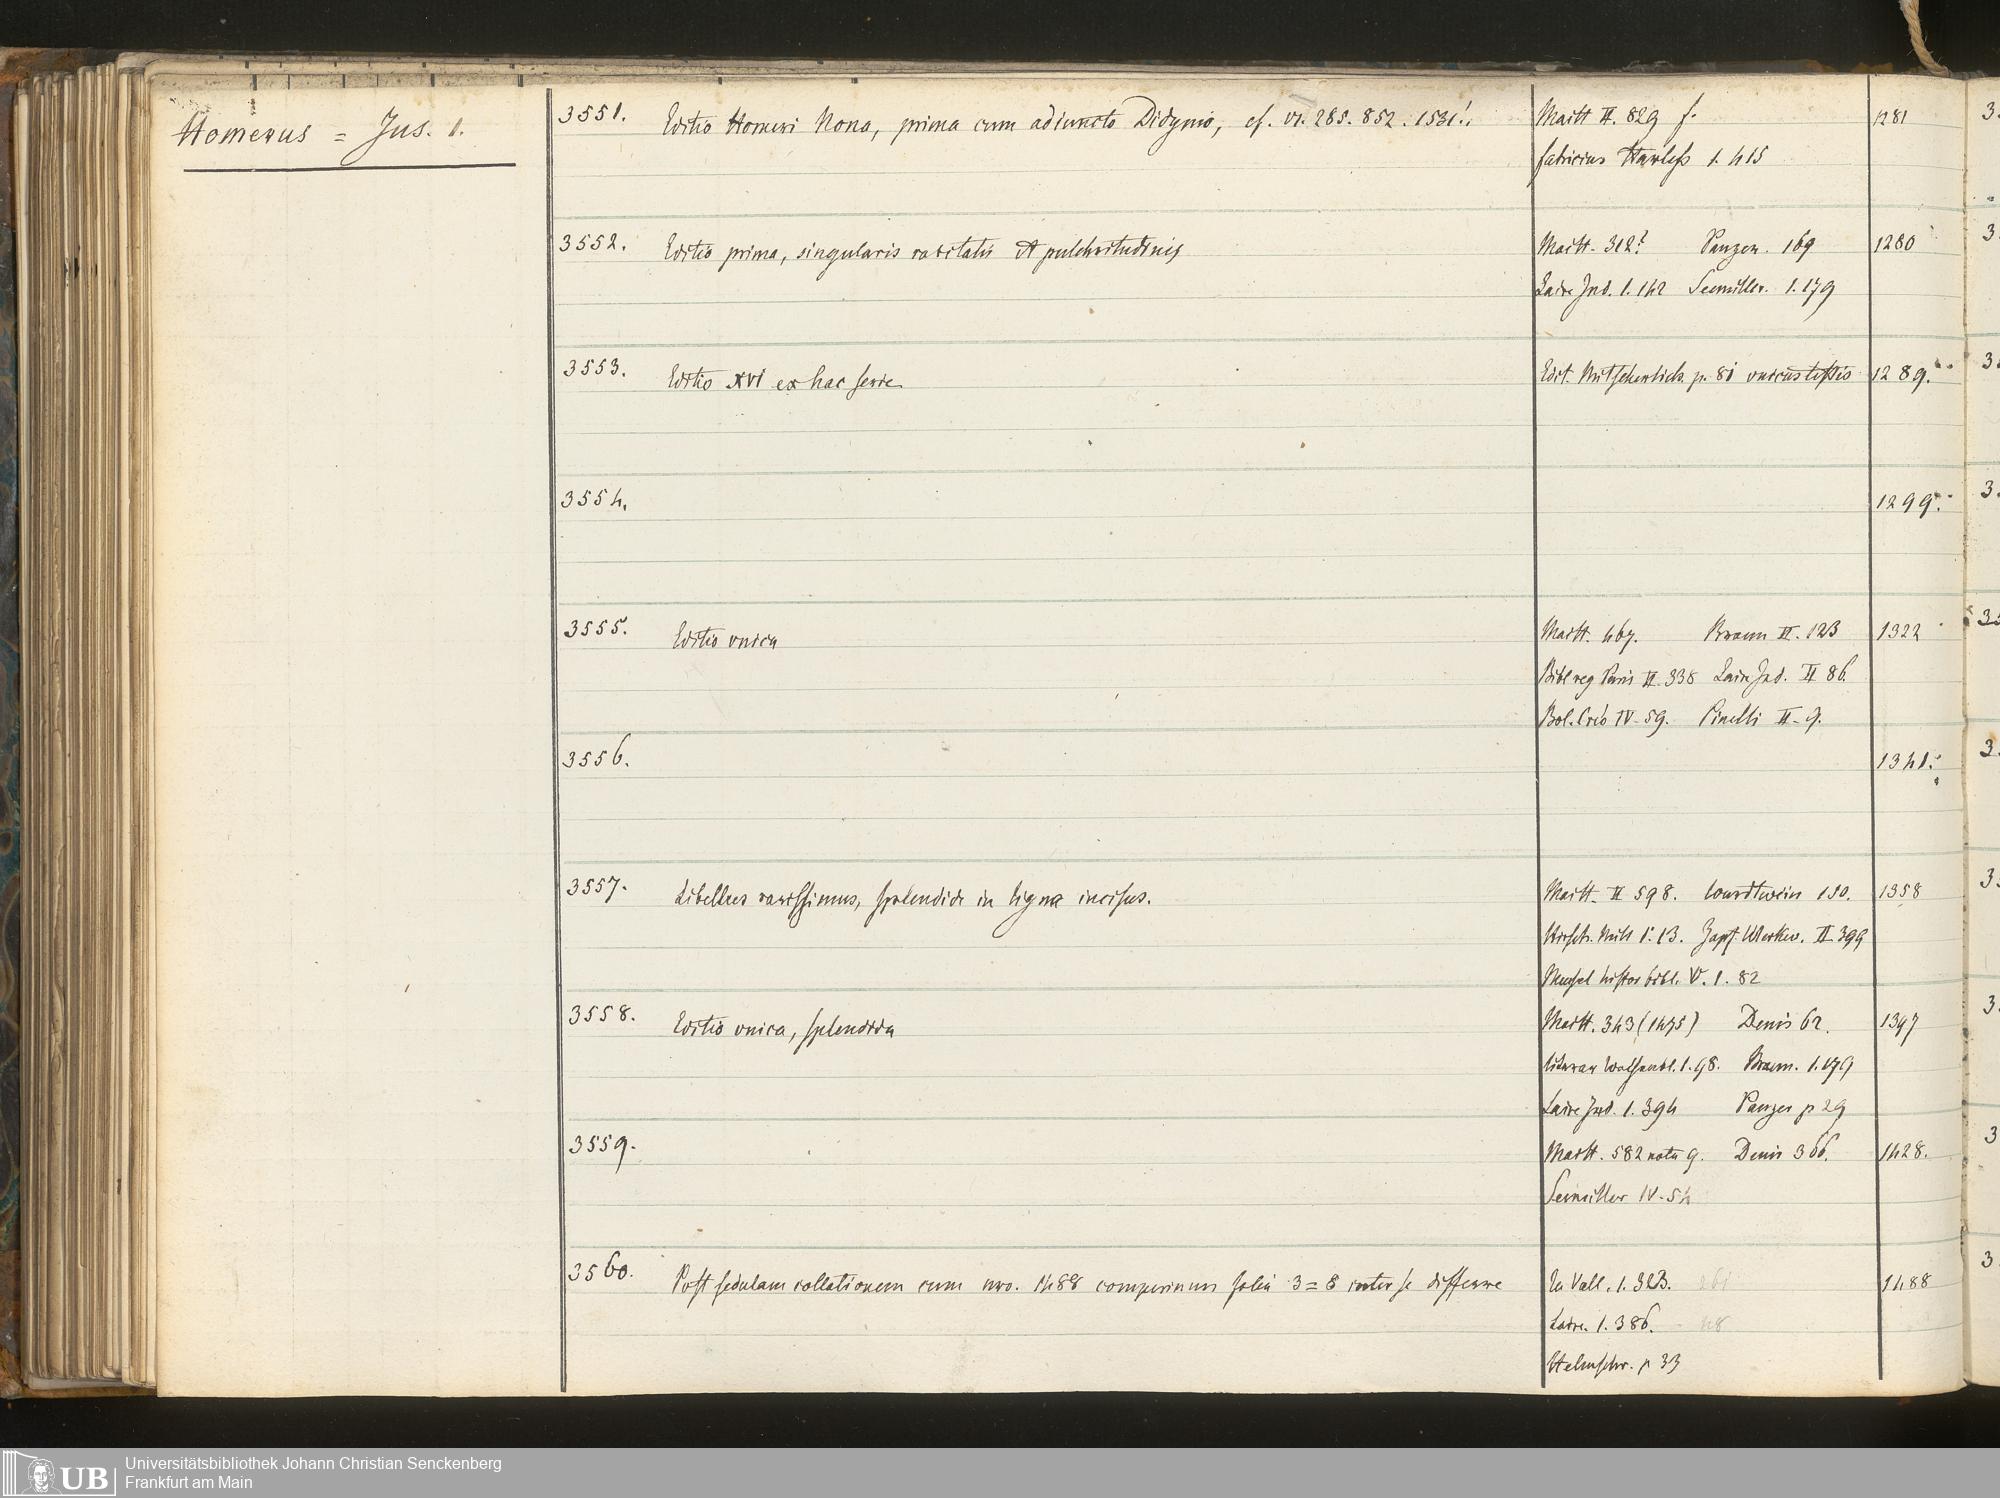 Homerus = Jus. 1.
3551. Editio Homeri Nona, prima cum adiuncto Didymo, cf. vi. 285. 852. 1531!. Maitt II. 829 f. 1281
fabricius Harless 1. 415
3552. Editio prima, singularis raritatis et pulchritudinis Maitt. 312? Panzer. 169 1280
Laire Ind. 1. 142 Seemiller. 1. 179
3553. Editio xvi ex hac serie Edit. Mitscherlich. p. 81 unicus testis 1289.
3554. 1299.
3555. Editio unica Maitt. 467. Braun II. 123 1322
Bibl reg Paris II. 338 Laire Ind. II 86.
IV. 59. Pinelli II. 9.
3556. 1341.
3557. Libellus rarissimus, splendide in ligna incisus. Maitt. II 598. Wurdtwein 130. 1358
Hirsch. Mill 1. 13. Zapf. Merkw. II 399
Meusel histor bibl. V. 1. 82
3558. Editio unica, splendida Maitt. 343 (1475) Denis 62. 1397
1. 98. Braun. 1. 179
Laire Ind. 1. 394 Panzer p 29
3559. Maitt. 582 nota 9. Denis 366. 1428.
Seemiller IV. 54
3560. Post sedulam collationem cum nro. 1488 comperimus folia 3=8 inter se differre La Vall. 1. 323. 1488
Laire. 1. 386. 48
Helmschr. p 33
UB
Universitätsbibliothek Johann Christian Senckenberg
Frankfurt am Main